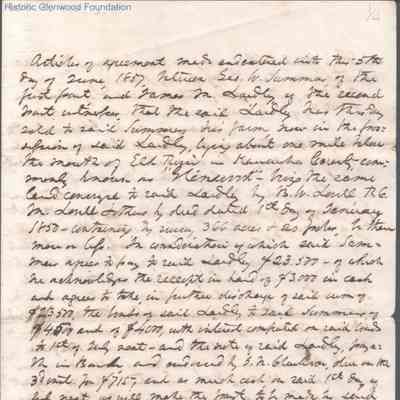 Historic Glenwood Foundation
Articles of agreement made and entered into this 5th
day of June 1857 between Geo. W. Summers of the
first part and James M. Laidley of the second
part witnesseth, that the said Laidley has this day
sold to said Summers his farm now in the pos-
session of said Laidley, lying about one mile above
the mouth of Elk River in Kanawha County com-
monly known as "Glenwood" being the same
land conveyed to said Laidley by
by deed dated 1st day of
1850 - containing by survey 366 acres & poles, be there
more or less. In consideration of which said Sum-
mers agrees to pay to said Laidley $23.500 - of which
he acknowledges the receipt in hand of $3000 in cash
and agrees to take in further discharge of said sum of
$23,500, the bonds of said Laidley to said Summers of
and of $4000, with interest computed on said bonds
to 1st of July next - and the note of said Laidley
in Bank and endorsed by due on the
for $7157 and as much cash on said 1st day of
July next as will make the to be made in such